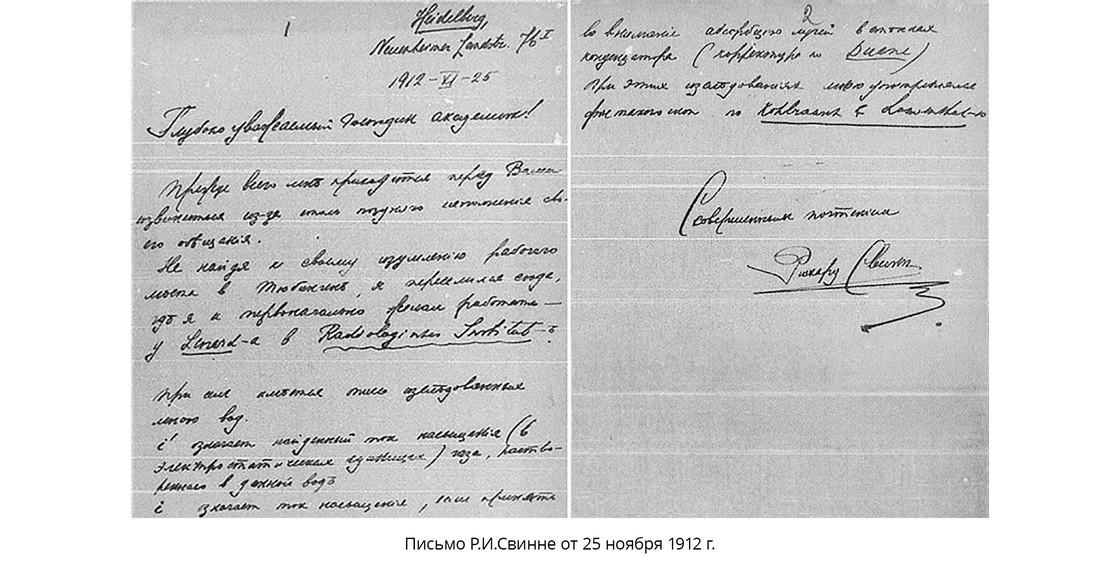 1
Heidelberg,
Neuenheimer Landstr. 76 I
1912-XI-25
Глубоко уважаемый Господин Академикъ!
Прежде всего мнѣ приходится передъ Вами
извиниться из-за столь поздняго исполненія сво-
его обѣщанія.
Не найдя к своему изумленію рабочаго
мѣста в Тюбингенѣ, я переселился сюда,
гдѣ я и первоначально желал работать —
у Lenard-а в Radiologisches Institut-ѣ.
При сем имѣется опись изслѣдованных
мною вод.
i' означает найденный ток насыщенія (в
электростатических единицах) газа, раство-
реннаго в данной водѣ
i означает ток насыщенія, если принять
2
во вниманіе абсорбцію лучей в стѣнках
конденсатора (корректура по Duane)
При этих изслѣдованіях мною употреблялся
по Kohlrausch & Loewenthal-ю
С совершенным почтеніем
Рихард Свинне
Письмо Р.И.Свинне от 25 ноября 1912 г.